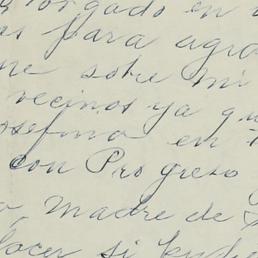 orgado en
para agra
sobre mi
vecinos ya qu
osefina en
con Progreso
Madre de
hacer si